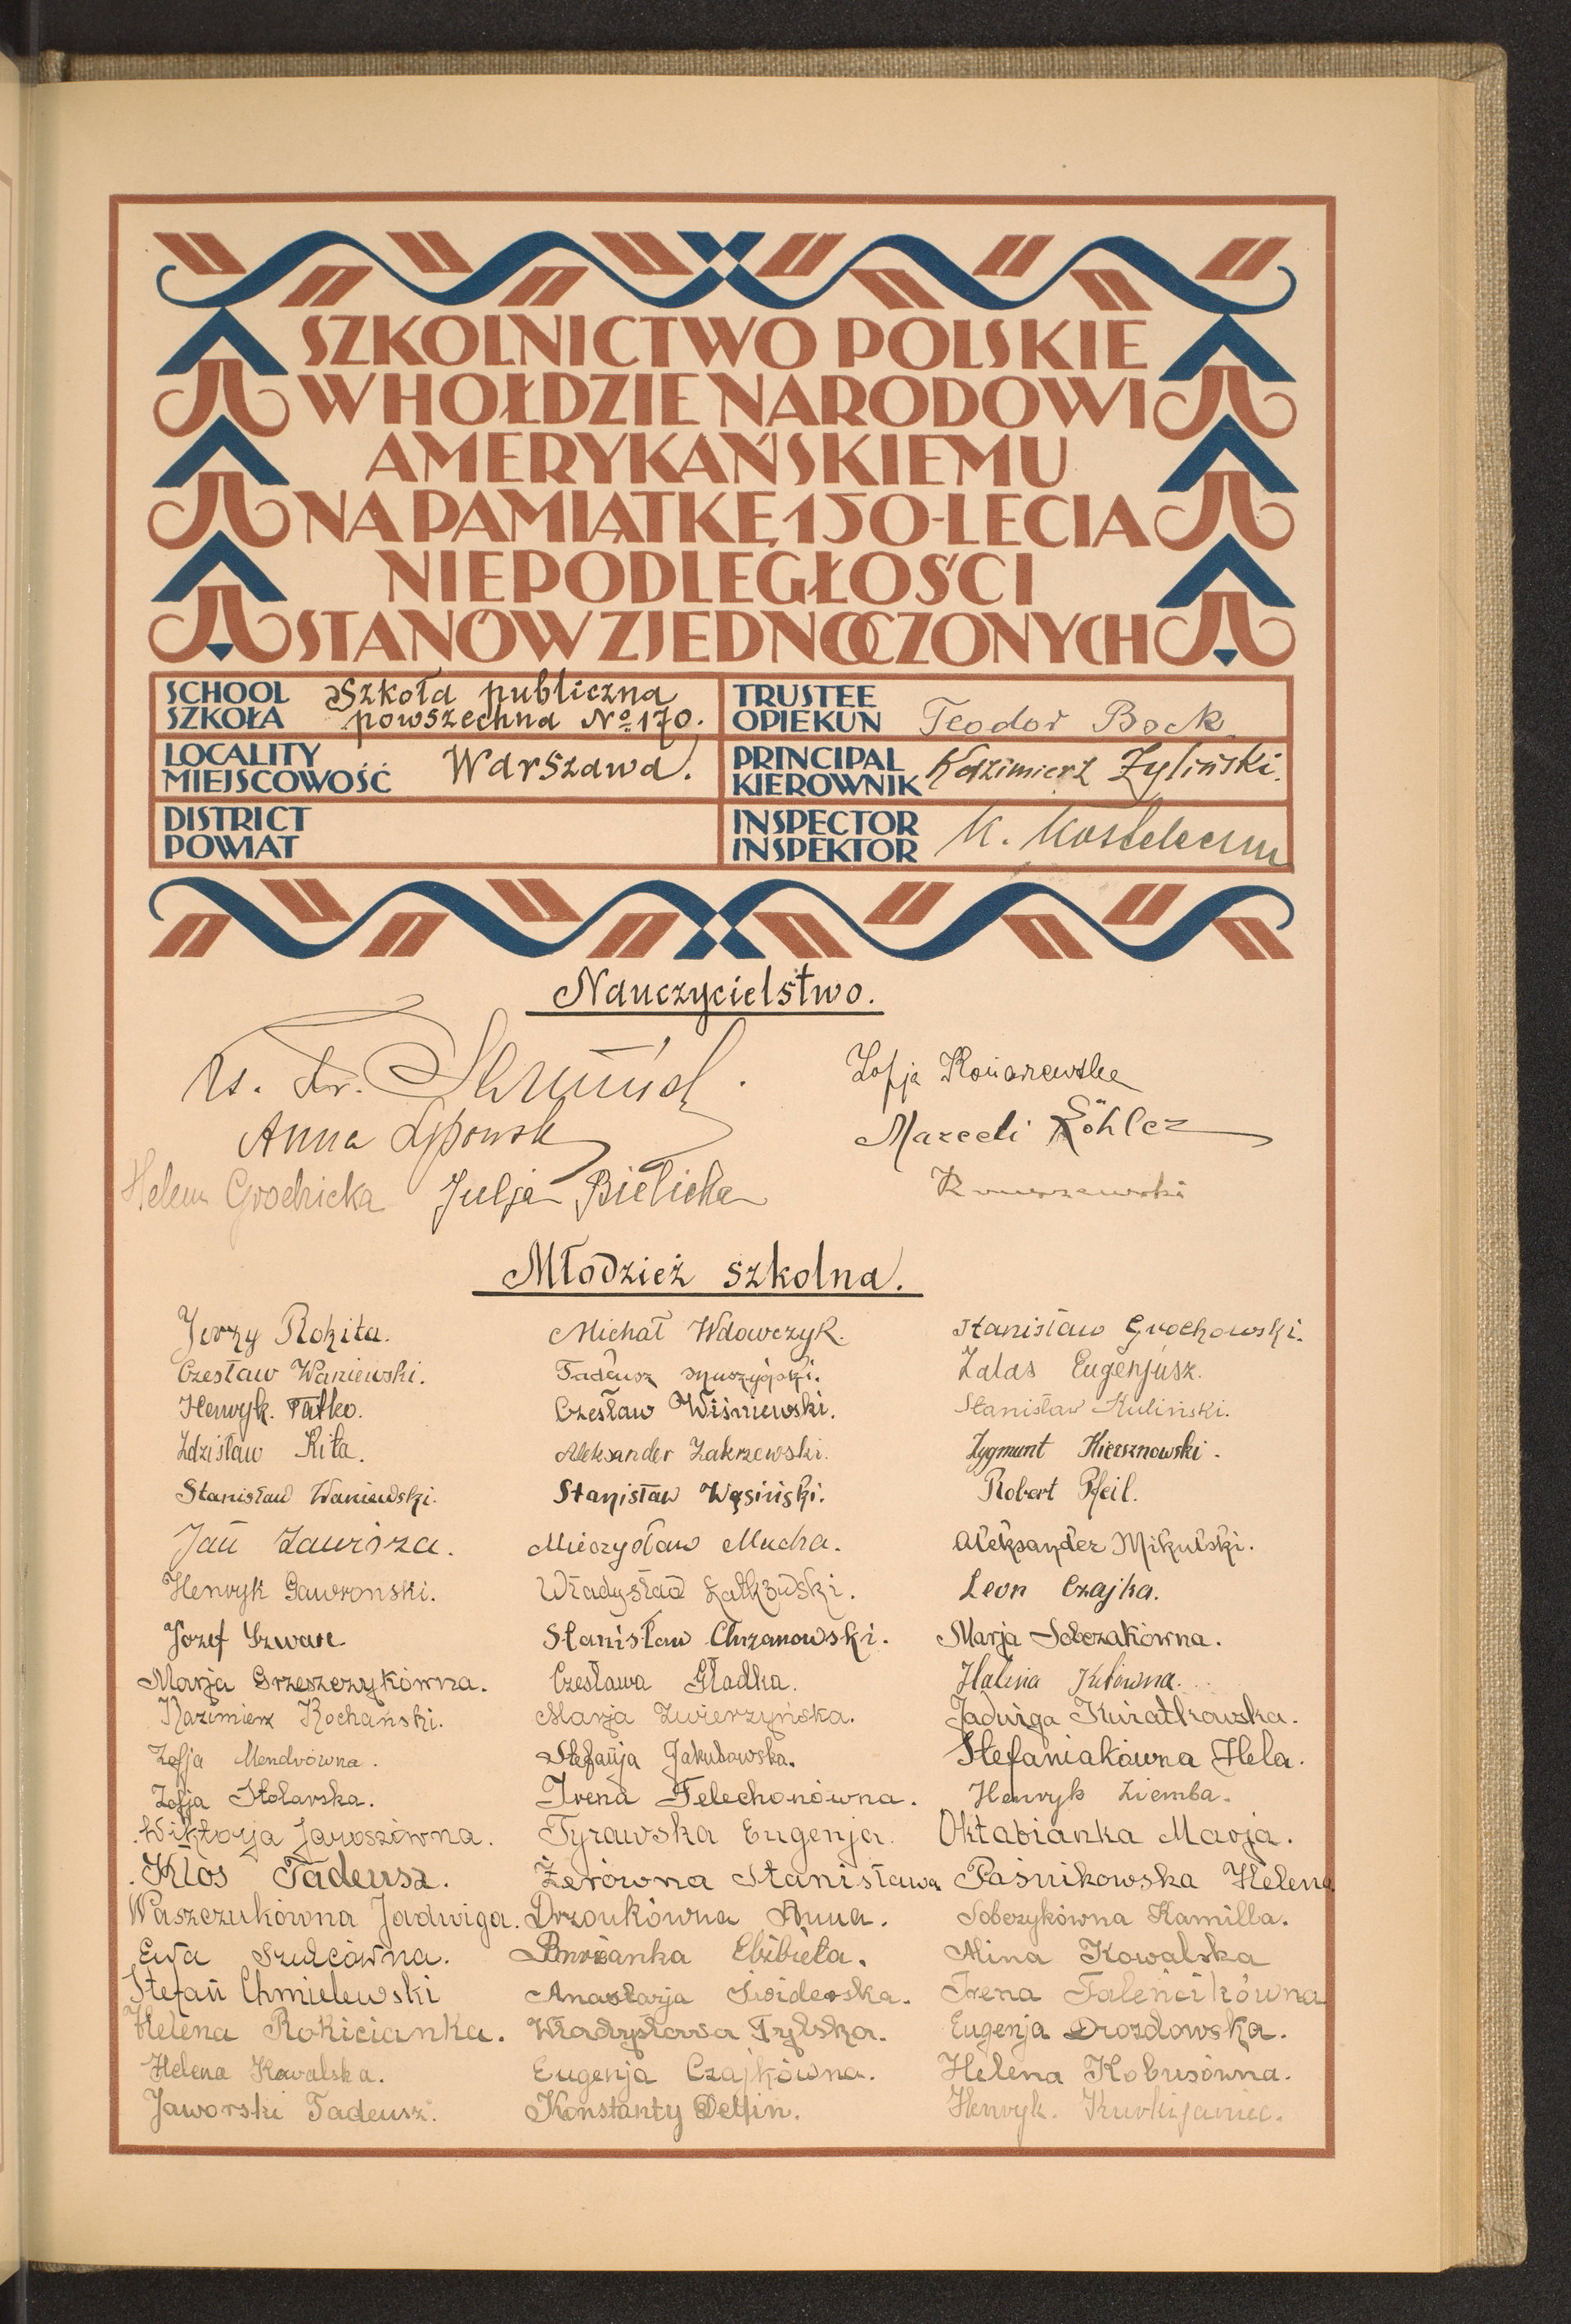 SZKOLNICTWO POLSKIE
W HOŁDZIE NARODOWI
AMERYKAŃSKIEMU
NA PAMIĄTKĘ 150-LECIA
NIEPODLEGŁOŚCI
STANÓW ZJEDNOCZONYCH
SCHOOL
SZKOŁA
Szkoła publiczna
powszechna № 170.
TRUSTEE
OPIEKUN
Teodor Bock
LOCALITY
MIEJSCOWOŚĆ
Warszawa.
PRINCIPAL
KIEROWNIK
Kazimierz Żyliński.
DISTRICT
POWIAT
INSPECTOR
INSPEKTOR
K.
Nauczycielstwo.
Zofja
Anna
Marceli Köhler
Helena Grochicka
Julja Bielicka
Młodzież szkolna.
Jerzy Rokita.
Michał Wdowczyk.
Stanisław Grochowski.
Czesław Waniewski.
Tadeusz
Zalas Eugenjusz.
Henryk Fatko.
Czesław Wiśniewski.
Stanisław Kuliński.
Zdzisław Kita.
Aleksander Zakrzewski.
Zygmunt Kiersznowski.
Stanisław Waniewski.
Stanisław Wąsiński.
Robert Pfeil.
Jan Zawisza.
Mieczysław Mucha.
Aleksander Mikulski.
Henryk Gawronski.
Władysław
Leon Czajka.
Józef Szwarc
Stanisław Chrzanowski.
Marja Sobczakówna.
Marja Grzeszczykówna.
Czesława Gładka.
Halina
Kazimierz Kochański.
Marja Zwierzyńska.
Jadwiga Kwiatkowska.
Zofja Mendrówna.
Stefanja Jakubowska.
Stefaniakówna Hela.
Zofja Stolarska.
Irena Felechonówna.
Henryk Ziemba.
Wiktorja Jaroszówna.
Tyrawska Eugenja.
Oktabianka Marja.
Klos Tadeusz.
Żerówna Stanisława
Paśnikowska Helena
Waszczukówna Jadwiga.
Drzonkówna Anna.
Sobczykówna Kamilla.
Ewa Szulcówna.
Elżbieta.
Alina Kowalska
Stefan Chmielewski
Anastazja Świderska.
Irena Falencikówna
Helena Rokicianka.
Władysława Tylska.
Eugenja Drozdowska.
Helena Kowalska.
Eugenja Czajkówna.
Helena Kobusówna.
Jaworski Tadeusz.
Konstanty Delfin.
Henryk